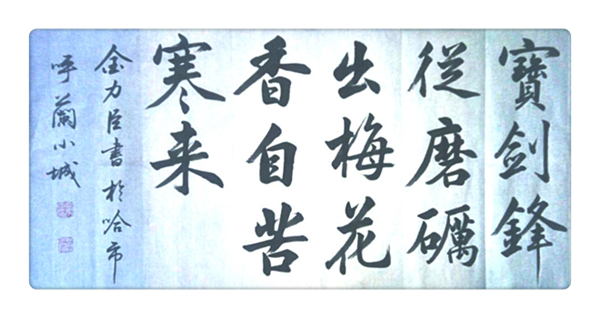 寶剑鋒
從磨礪
出梅花
香自苦
寒来
金力臣書於哈市
呼蘭小城